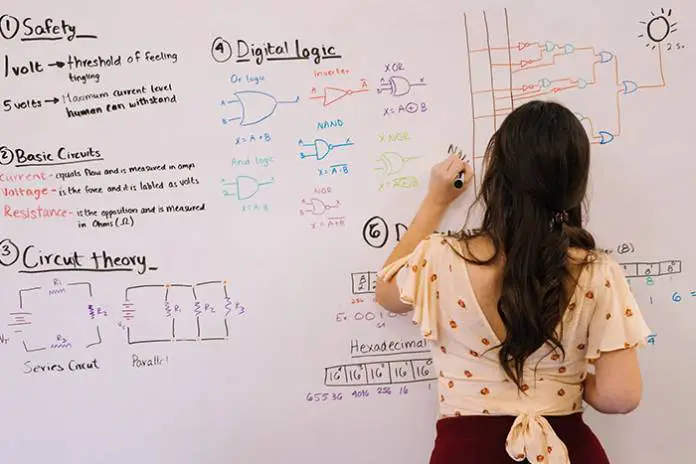 ① Safety
1 volt → threshold of feeling
tingling
5 volts → Maximum current level
human can withstand
② Basic Circuits
Current - equals flow and is measured in amps
Voltage - is the force and it is labled as volts
Resistance - is the opposition and is measured
in Ohms (Ω)
③ Circuit theory
R1
R2
R3
VT
Series Circuit
R1
R2
R3
Parallel
④ Digital logic
Or logic
A
B
X
X = A+B
Inverter
A
A̅
XOR
A
B
X
X = A⊕B
And logic
A
B
X
X = A·B
NAND
A
B
X
X = A̅·̅B̅
XNOR
X = A̅⊕̅B̅
NOR
X = A̅+̅B̅
⑤ D
(B)
Ex. 001
Hexadecimal
16 16 16 16 16
65536 4096 256 16 1